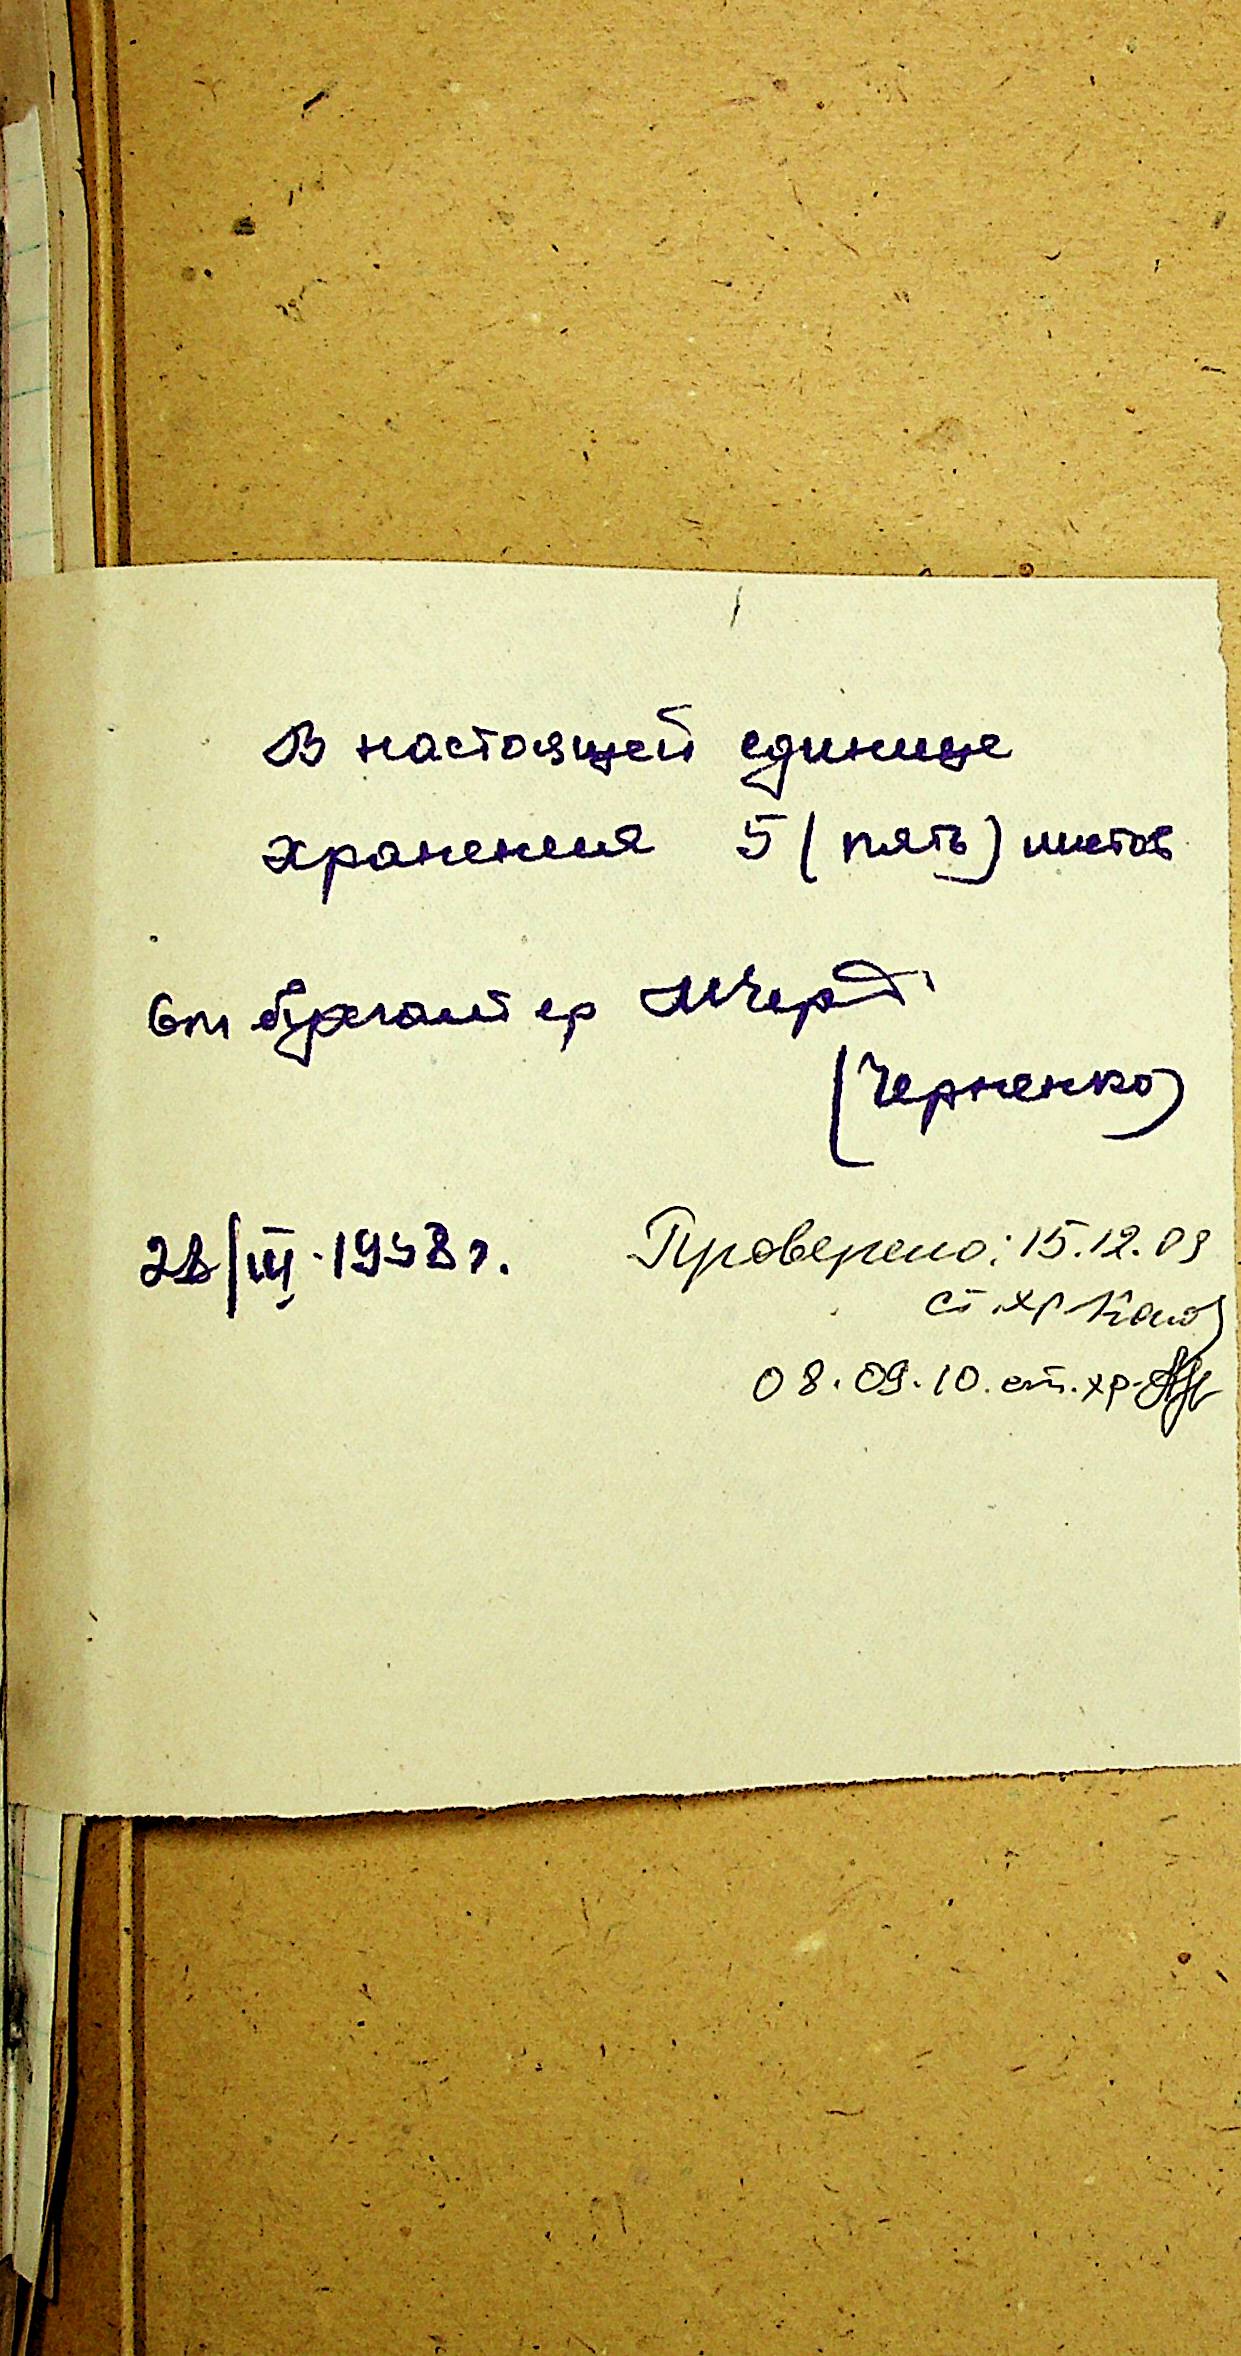 В настоящей единице
хранения 5 (пять) листов
бухгалтер
(Черненко)
28/III.1958г.
Проверено: 15.12.09
ст. хр
08.09.10. ст. хр.